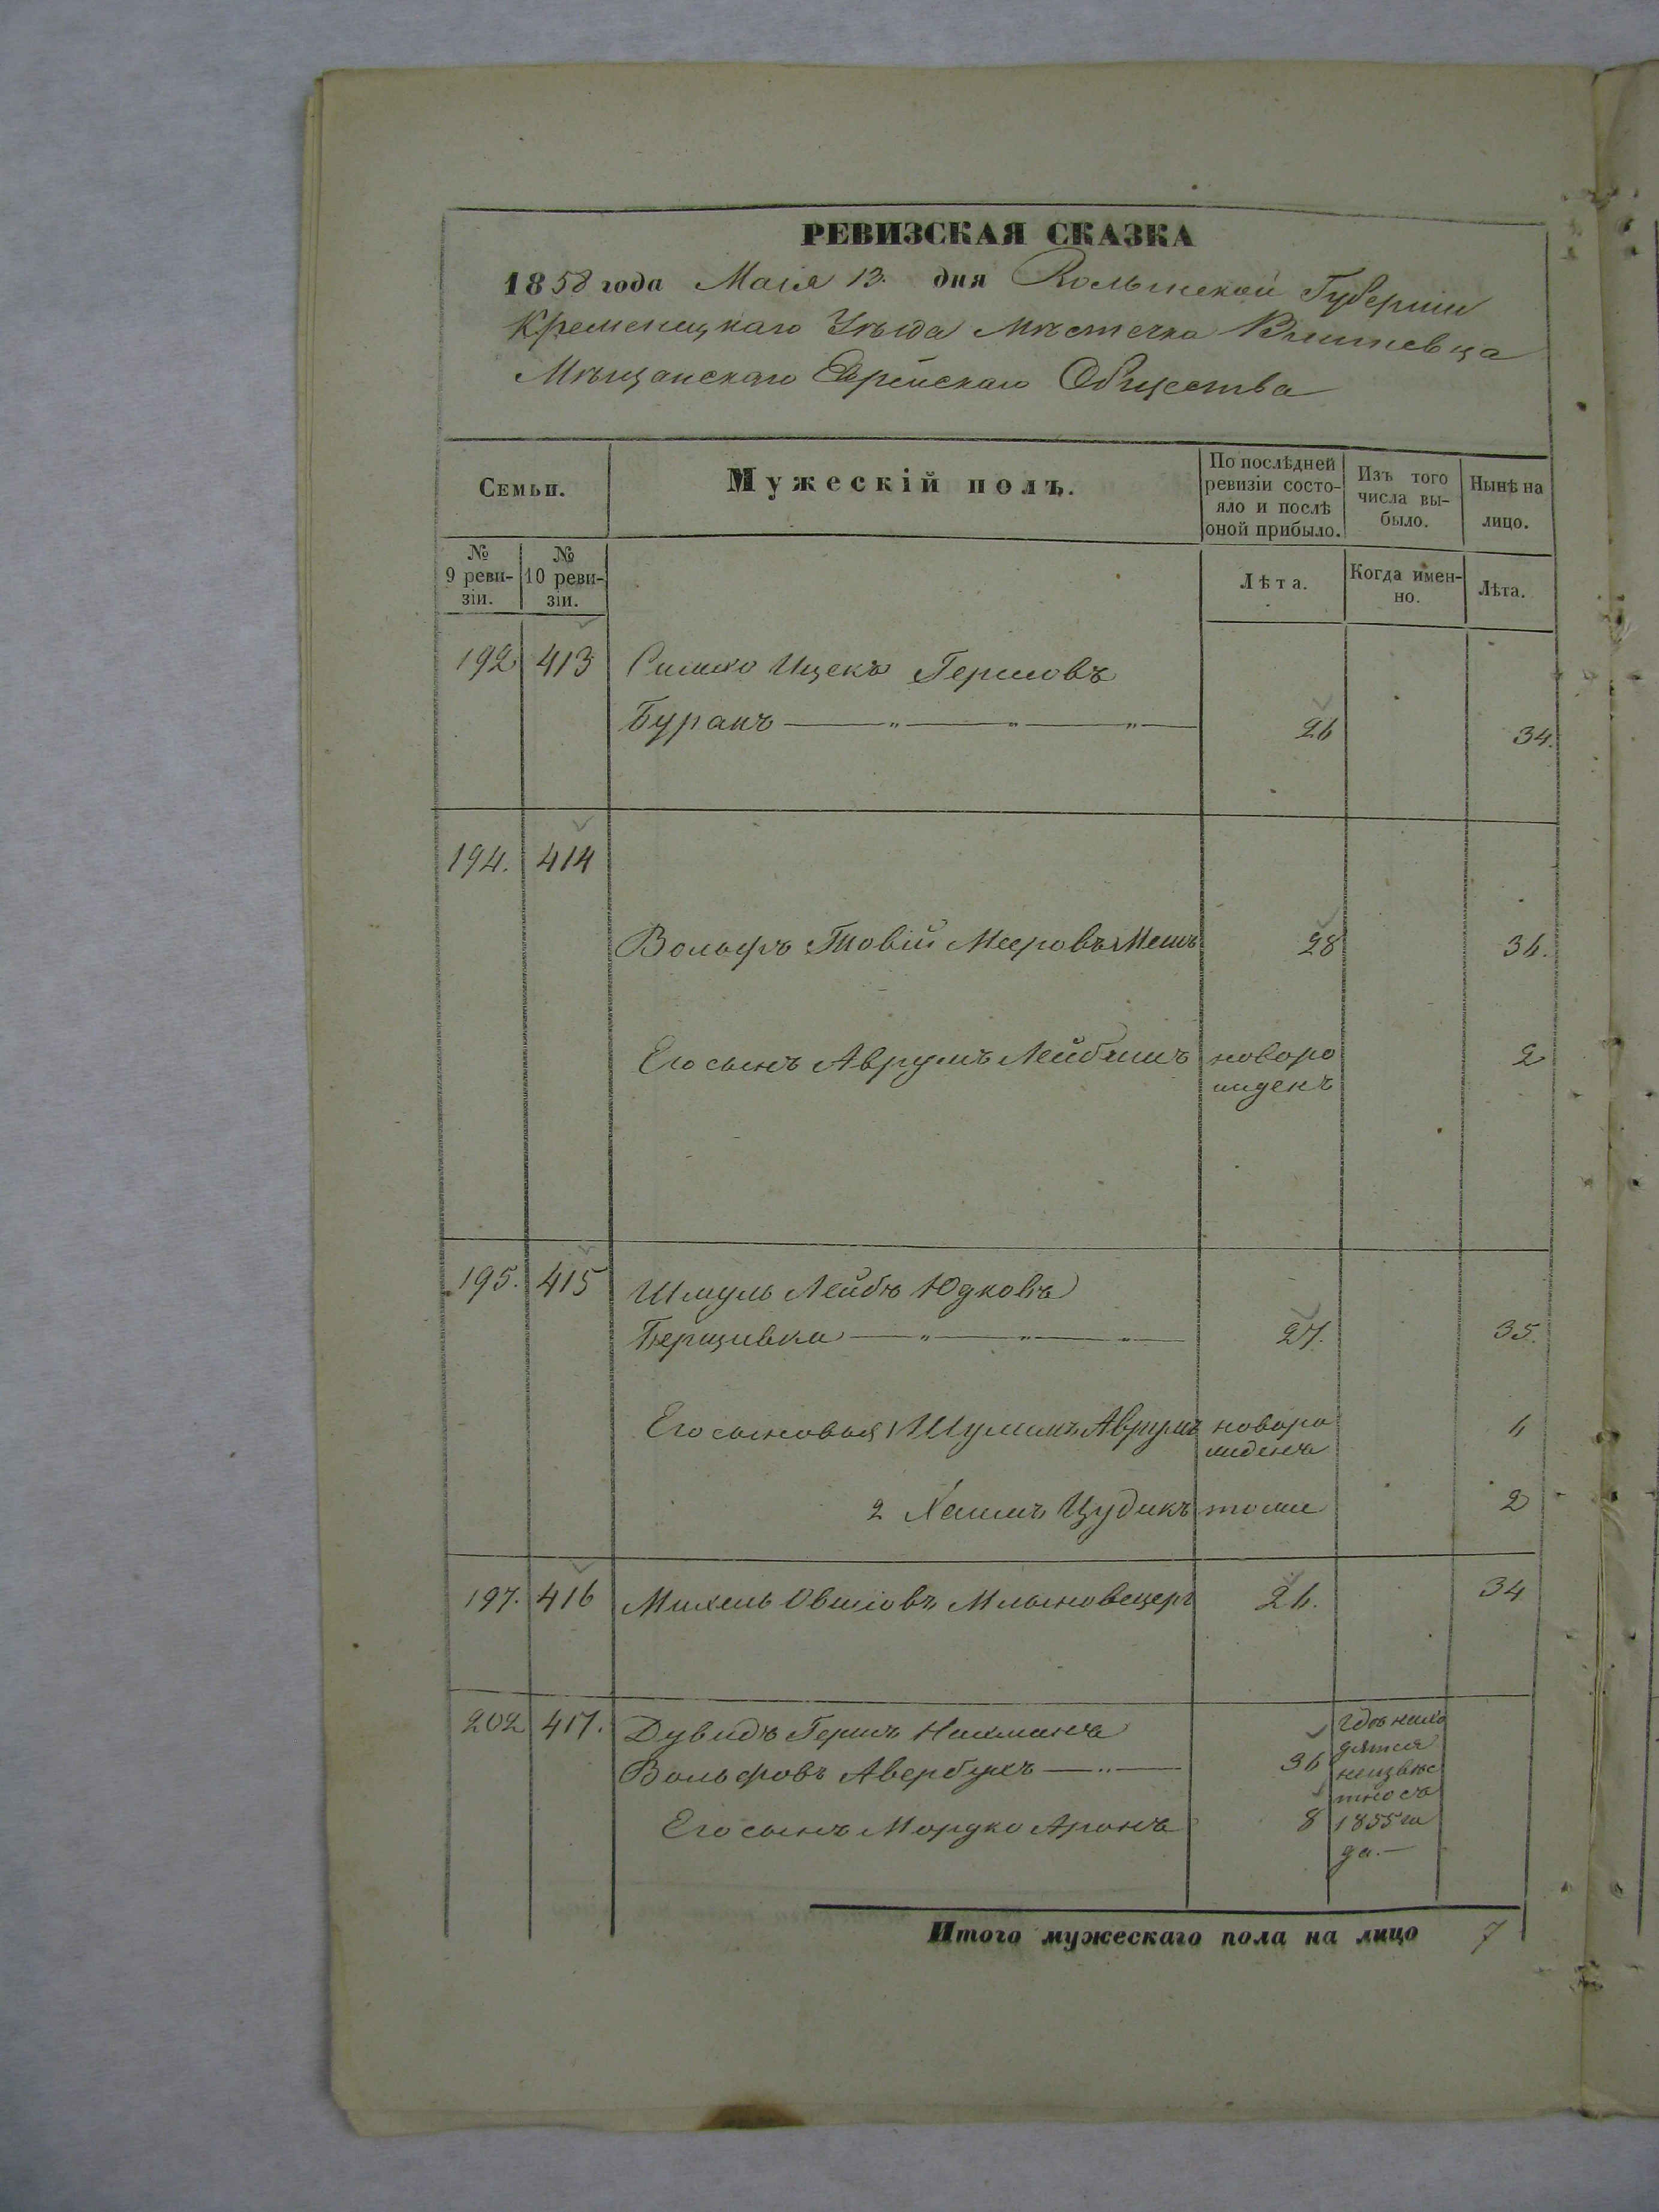 РЕВИЗСКАЯ СКАЗКА
1858 года Маія 13. дня Волынской Губерніи
Кременецкаго Уѣзда Мѣстечка Вишневца
Мѣщанскаго Еврейскаго Общества
Семьи.
Мужескій полъ.
По послѣдней ревизіи состо-
яло и послѣ
оной прибыло.
Изъ того
числа вы-
было.
Нынѣ на
лицо.
№
9 реви-
зіи.
№
10 реви-
зіи.
Лѣта.
Когда имен-
но.
Лѣта.
192 413 Симхо Ицекъ Гершовъ
Буранъ 26 34.
194. 414
Вольфъ Товій Мееровъ 28 36.
Его сынъ Аврумъ Лейбишъ новоро
жденъ 2
195. 415 Шмуль Лейбъ Юдковъ
Берщивка 27. 35.
Его сыновья 1 Шулимъ Аврумъ новоро
жденъ 6
2 Хаимъ Цудикъ тоже 2
197. 416 Михель Овшіовъ Млыновецеръ 26. 34
202 417. Дувидъ Гершъ Нахманъ
Вольфовъ Авербухъ 36
Его сынъ Мордко Аронъ 8
гдѣ нахо
дятся
неизвѣс
тно съ
1855 го
да.—
Итого мужескаго пола на лицо 7